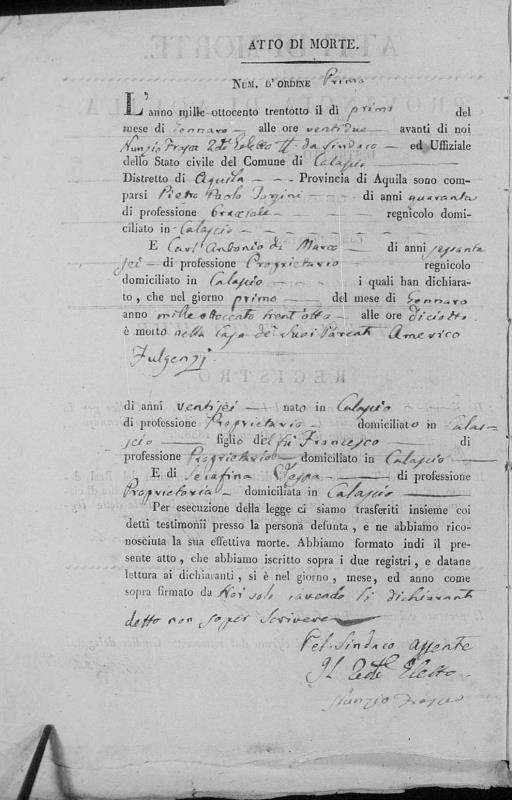 ATTO DI MORTE.
Num. d'ordine Primo
L'anno mille ottocento trentotto il dì primo del
mese di Gennaro alle ore ventidue avanti di noi
Nunzio 2do Eletto da Sindaco ed Uffiziale
dello Stato civile del Comune di Calascio
Distretto di Aquila Provincia di Aquila sono com-
parsi Pietro Paolo di anni quaranta
di professione bracciale regnicolo domi-
ciliato in Calascio
E Carl'Antonio di Marco di anni sessanta
sei di professione Proprietario regnicolo
domiciliato in Calascio i quali han dichiara-
to, che nel giorno primo del mese di Gennaro
anno mille ottocento trent'otto alle ore diciotto
è morto nella Casa de' Suoi Parenti Americo
Fulgenzj
di anni ventisei nato in Calascio
di professione Proprietario domiciliato in Calas-
cio figlio del fù Francesco di
professione Proprietario domiciliato in Calascio
E di Serafina di professione
Proprietaria domiciliata in Calascio
Per esecuzione della legge ci siamo trasferiti insieme coi
detti testimonii presso la persona defunta, e ne abbiamo rico-
nosciuta la sua effettiva morte. Abbiamo formato indi il pre-
sente atto, che abbiamo iscritto sopra i due registri, e datane
lettura ai dichiaranti, si è nel giorno, mese, ed anno come
sopra firmato da Noi solo, avendo li dichiaranti
detto non saper scrivere
Pel Sindaco assente
Il 2do Eletto
Nunzio